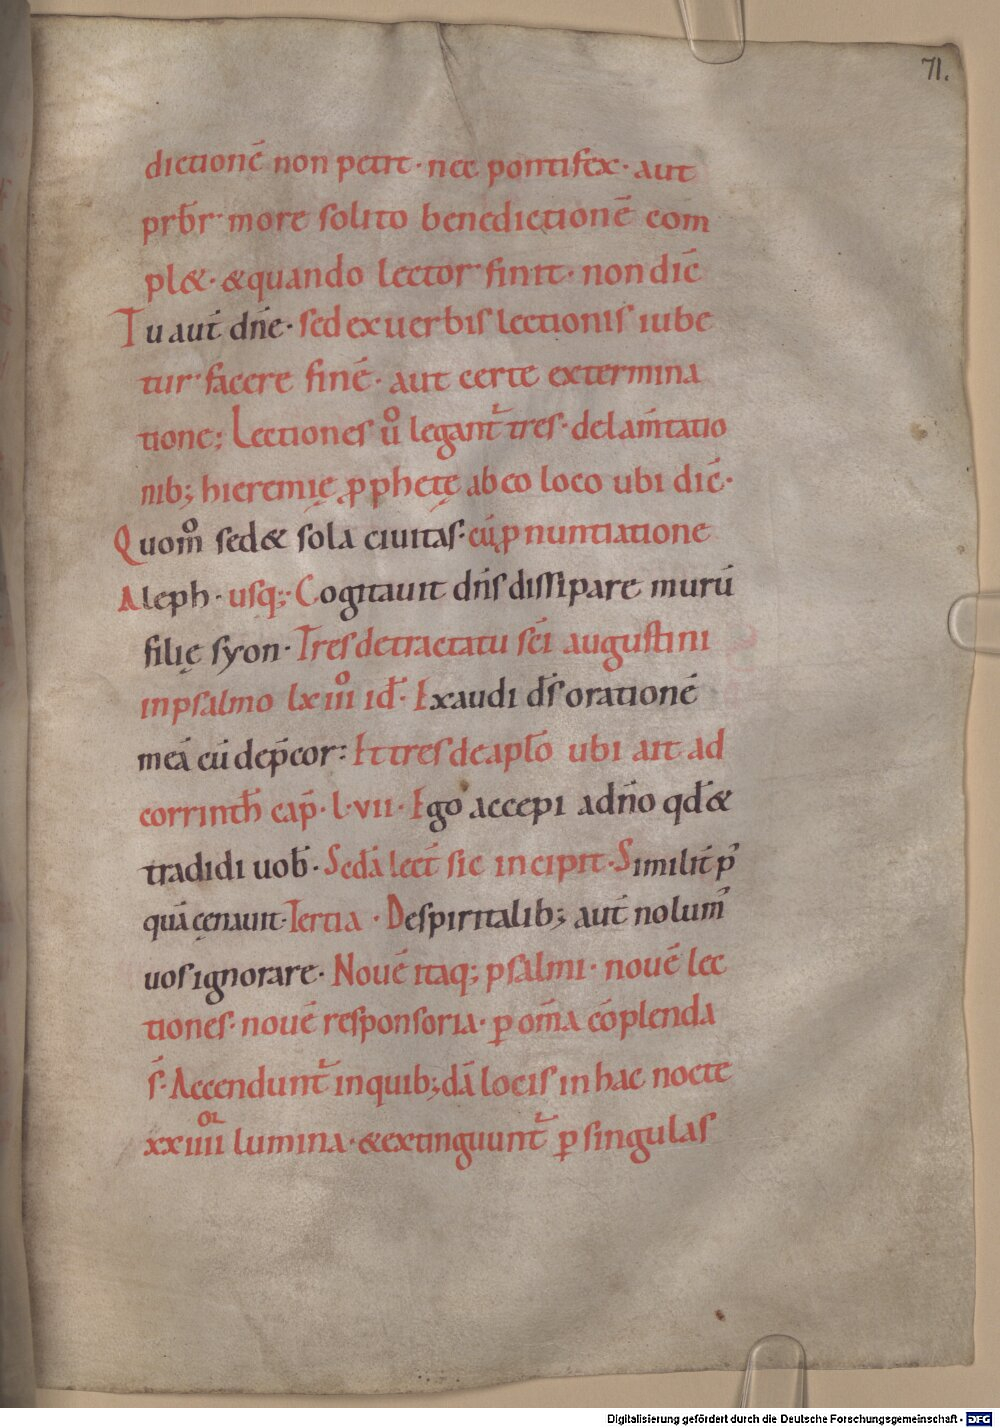 71.
dictionē non petit · nec pontifex · aut
prb̄r · more solito benedictionē com
pl& · & quando lector finit · non dic̄
Tu aut̄ dn̄e · sed ex uerbis lectionis iube
tur facere finē · aut certe extermina
tione; Lectiones ů legant᷑ tres · de lam̄tatio
nib; hieremię ꝓphetę ab eo loco ubi dic̄ ·
Quom̊ sed& sola ciuitas · cū ꝓnuntiatione
Aleph · usq; · Cogitauit dn̄s dissipare murū
filię syon · Tres de tractatu sc̄i augustini
in psalmo lxiii̊ id̄ · Exaudi d̄s orationē
meā cū dep̄cor : Et tres de apl̄o ubi ait ad
corrinth̄ cap̄ · l · vii · Ego accepi a dn̄o qd̄ &
tradidi uob̄ · Sed̄a lect̄ sic incipit · Similit̄ p᷒
quā cęnauit · Tertia · De spiritalib; aut̄ nolum᷒
uos ignorare · Nouē itaq; psalmi · nouē lec
tiones · nouē responsoria · ꝑ om̄a cōplenda
s̄ · Accendunt᷑ in quib;dā locis in hac nocte
xxiiii oʳ lumina · & extinguunt᷑ ꝑ singulas
Digitalisierung gefördert durch die Deutsche Forschungsgemeinschaft - DFG